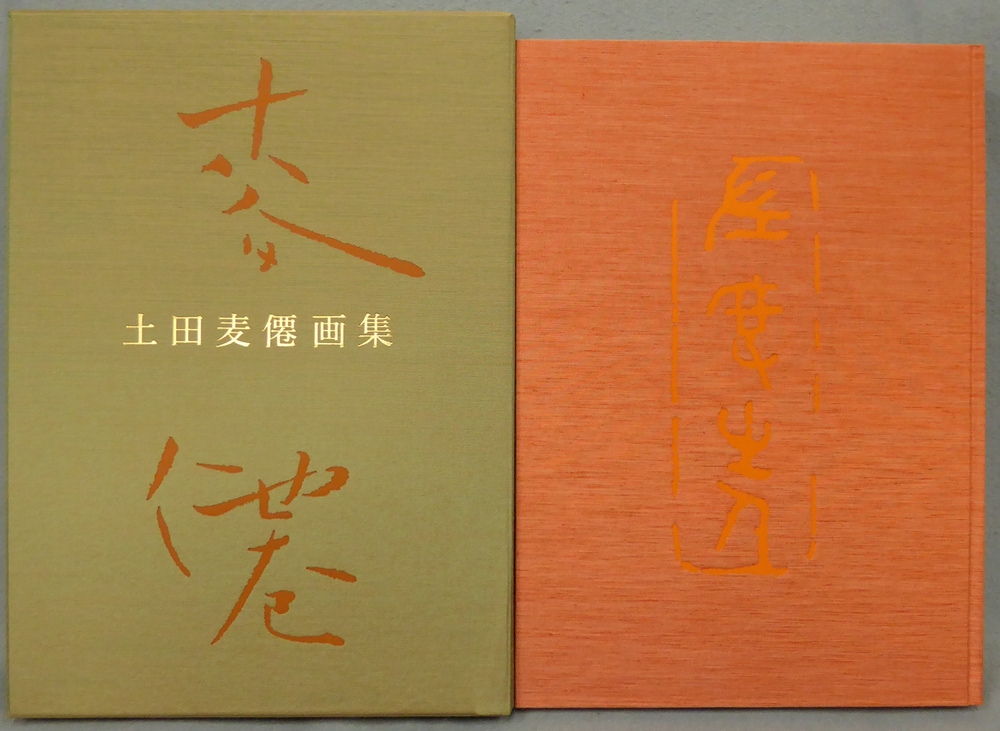 麥
土田麦僊画集
僊